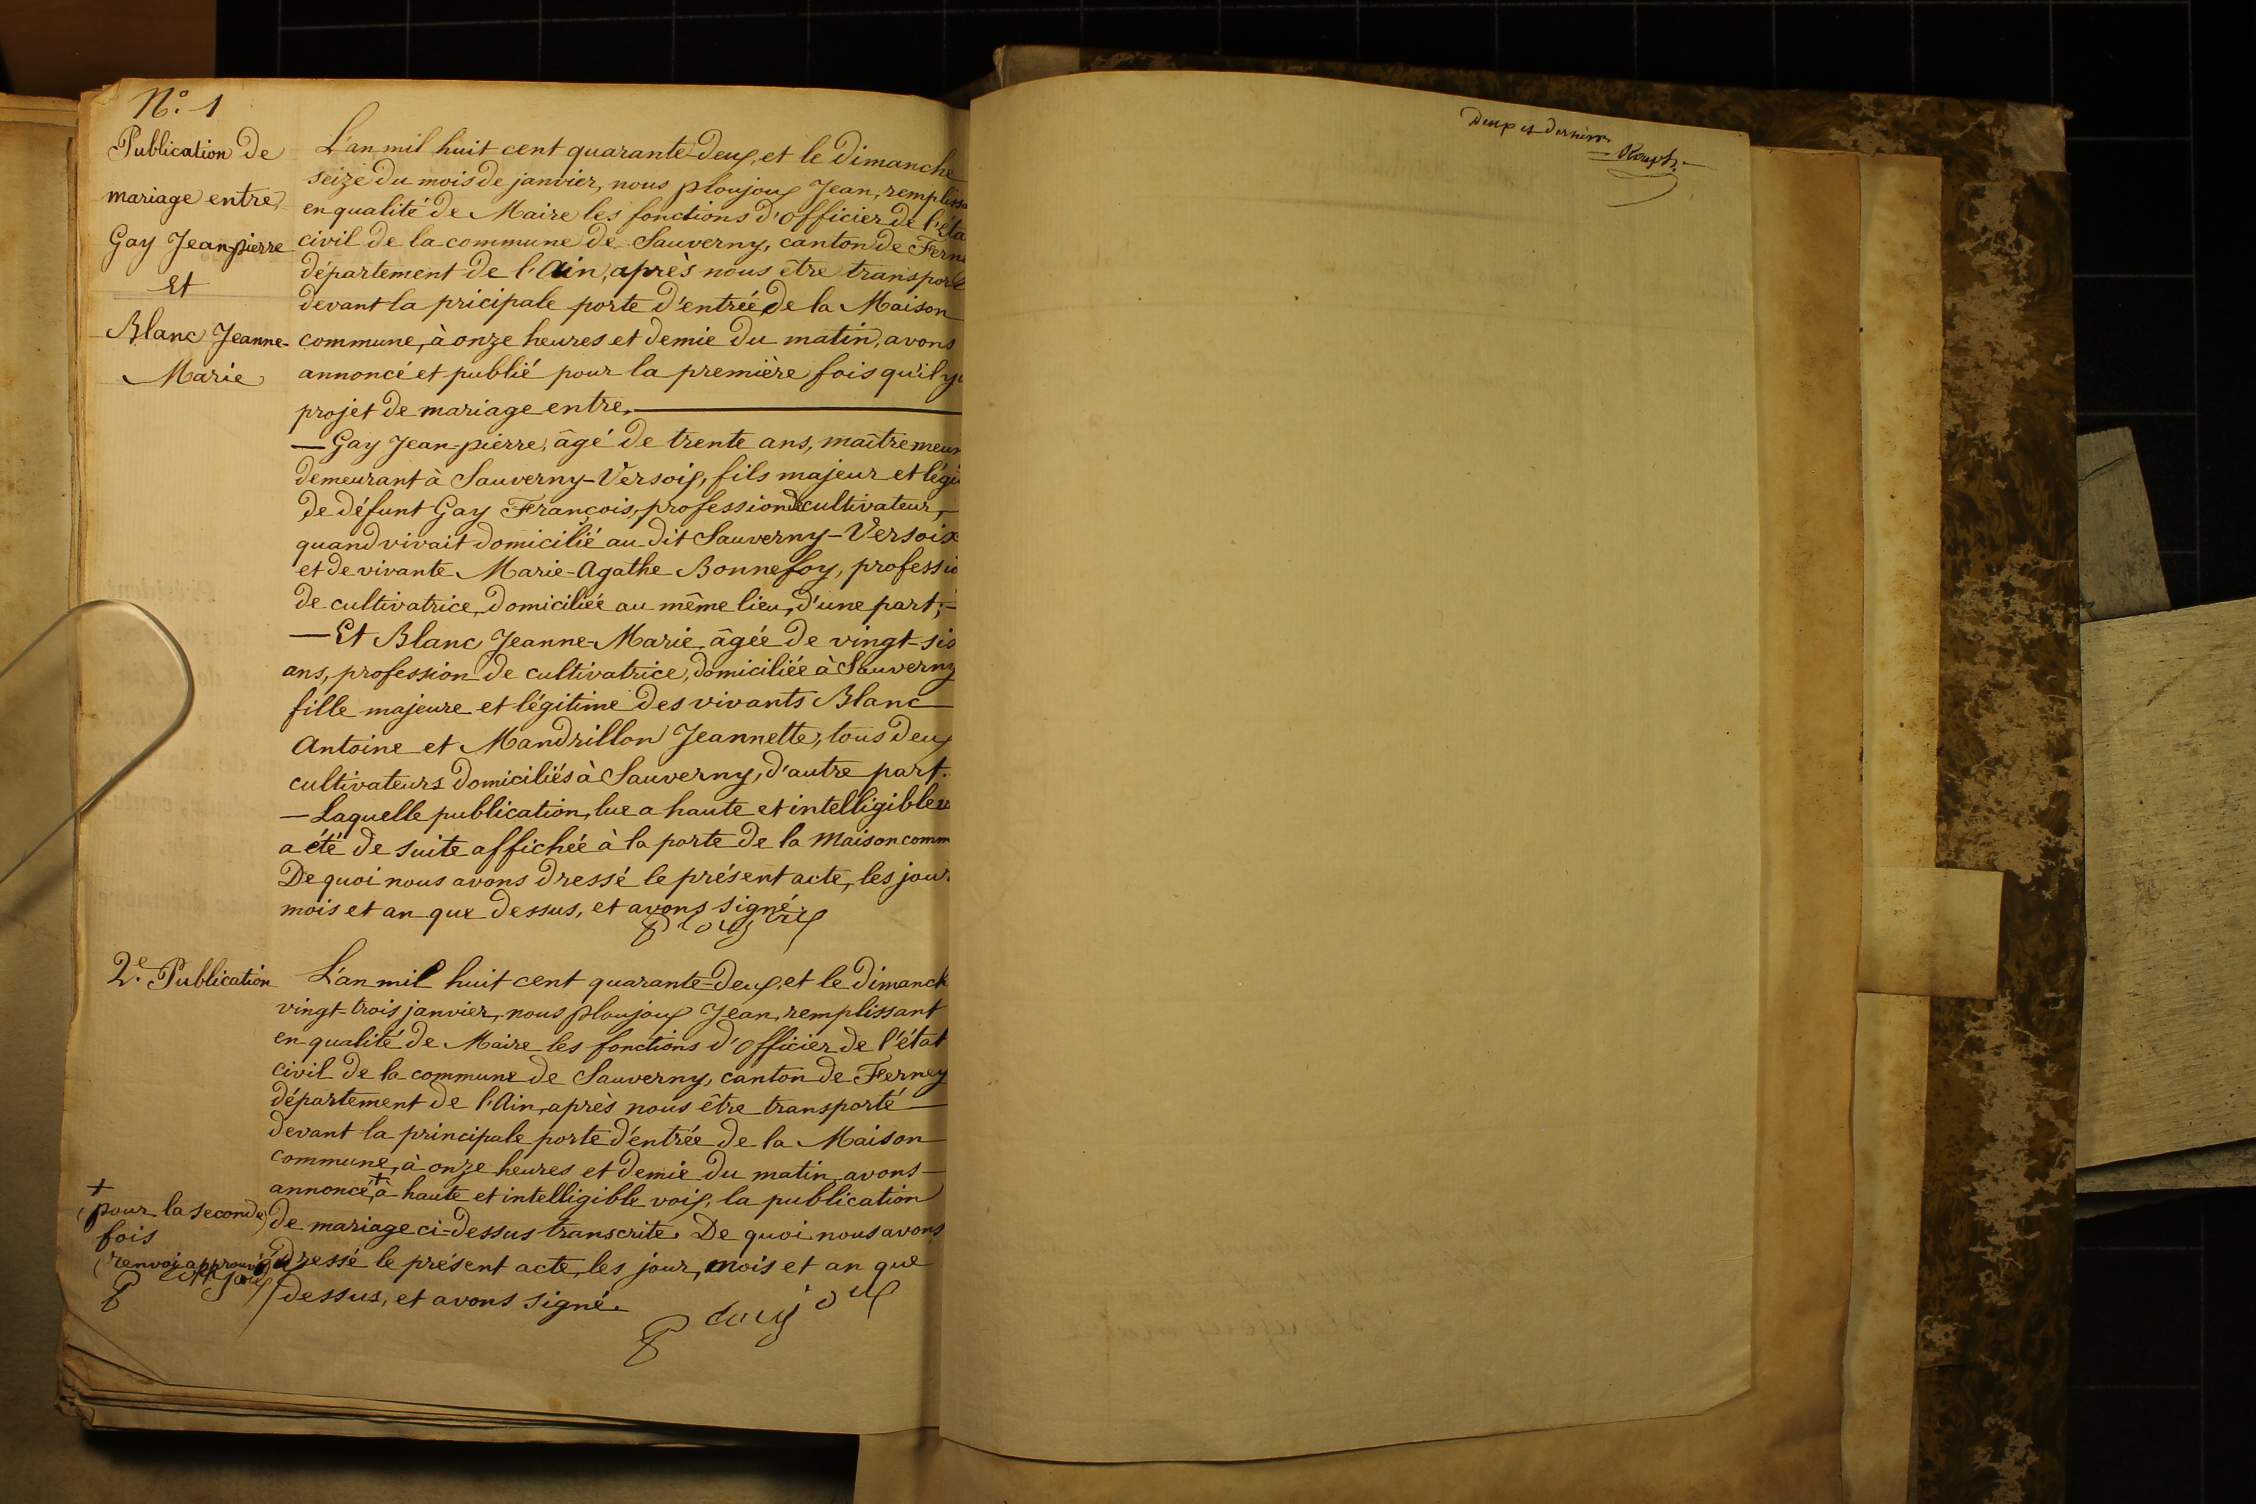 N.º 1
Publication de
mariage entre
Gay Jean-pierre
Et
Blanc Jeanne-
Marie
L'an mil huit cent quarante-deux, et le Dimanche
seize du mois de janvier, nous ploujoux Jean, remplissa
en qualité de Maire les fonctions d'Officier de l'éta
civil de la commune de Sauverny, canton de Ferne
département de l'Ain, après nous être transport
devant la pricipale porte d'entrée de la Maison
commune, à onze heures et demie du matin, avons
annoncé et publié pour la première fois qu'il y
projet de mariage entre,
— Gay Jean-pierre, âgé de trente ans, maître meun
demeurant à Sauverny-Versoix, fils majeur et légi
de défunt Gay François, profession de cultivateur,
quand vivait domicilié au dit Sauverny-Versoix
et de vivante Marie-Agathe Bonnefoy, professio
de cultivatrice, domiciliée au même lieu, d'une part;
— Et Blanc Jeanne-Marie, âgée de vingt-six
ans, profession de cultivatrice, domiciliée à Sauverny
fille majeure et légitime des vivants Blanc
Antoine et Mandrillon Jeannette, tous deux
cultivateurs domiciliés à Sauverny, d'autre part.
— Laquelle publication, lue a haute et intelligible v
a été de suite affichée à la porte de la Maison comm
De quoi nous avons dressé le présent acte, les jour
mois et an que dessus, et avons signé.
Ploujoux
2.e Publication
L'an mil huit cent quarante-deux, et le dimanch
vingt-trois janvier, nous ploujoux Jean, remplissant
en qualité de Maire les fonctions d'Officier de l'état
civil de la commune de Sauverny, canton de Ferney
département de l'Ain, après nous être transporté
devant la principale porte d'entrée de la Maison
commune, à onze heures et demie du matin, avons
annoncé, + à haute et intelligible voix, la publication
de mariage ci-dessus transcrite. De quoi nous avons
dressé le présent acte, les jour, mois et an que
dessus, et avons signé.
Ploujoux
+
(pour la seconde)
fois
(renvoi approuvé)
Ploujoux
Deux et dernier.